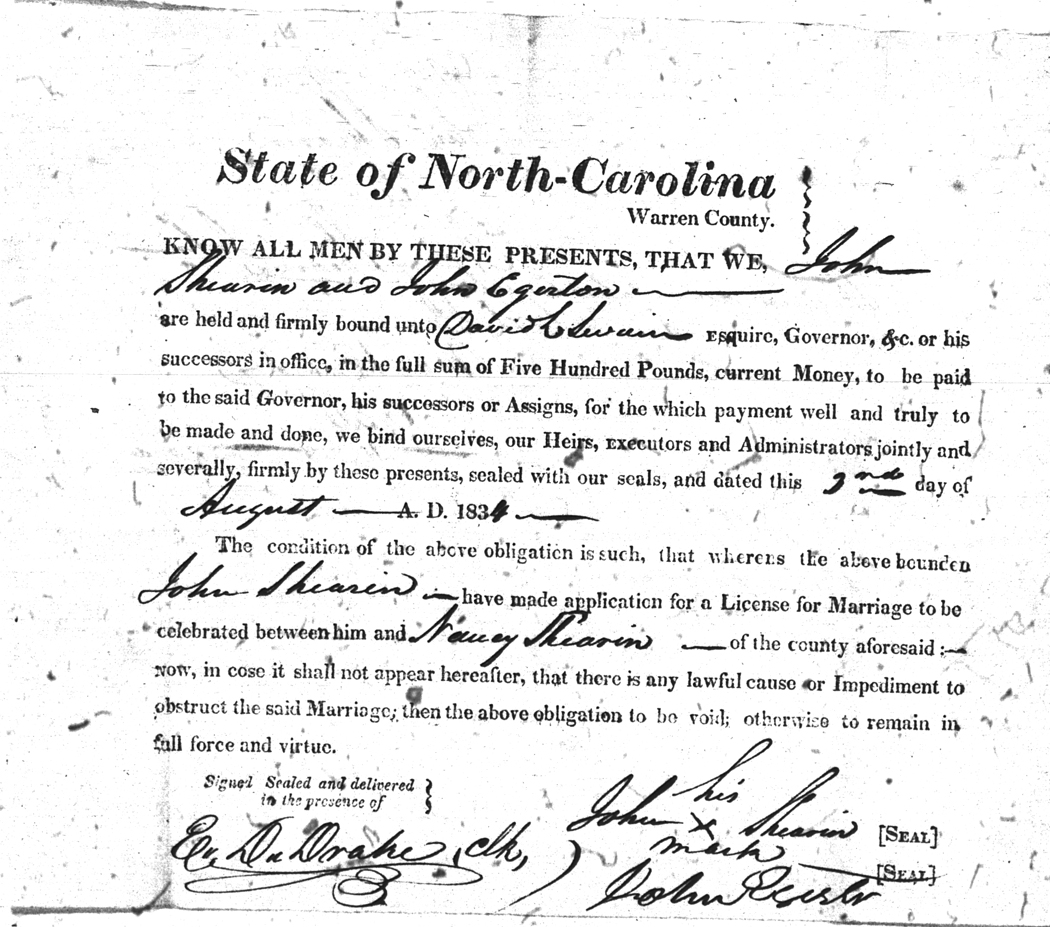 State of North-Carolina
Warren County.
KNOW ALL MEN BY THESE PRESENTS, THAT WE, John
Shearin and John Egerton
are held and firmly bound unto David L Swain ESquire, Governor, &c. or his
successors in office, in the full sum of Five Hundred Pounds, current Money, to be paid
to the said Governor, his successors or Assigns, for the which payment well and truly to
be made and done, we bind ourselves, our Heirs, EXecutors and Administrators jointly and
severally, firmly by these presents, sealed with our seals, and dated this nd day of
August A. D. 1834
The condition of the above obligation is such, that whereas the above bounden
John Shearin have made application for a License for Marriage to be
celebrated between him and Nancy Shearin of the county aforesaid:
now, in case it shall not appear hereafter, that there is any lawful cause or Impediment to
obstruct the said Marriage; then the above obligation to be void; otherwise to remain in
full force and virtue.
Signed Sealed and delivered
in the presence of
Drake, clk,
his
John x Shearin [SEAL]
mark
John [SEAL]